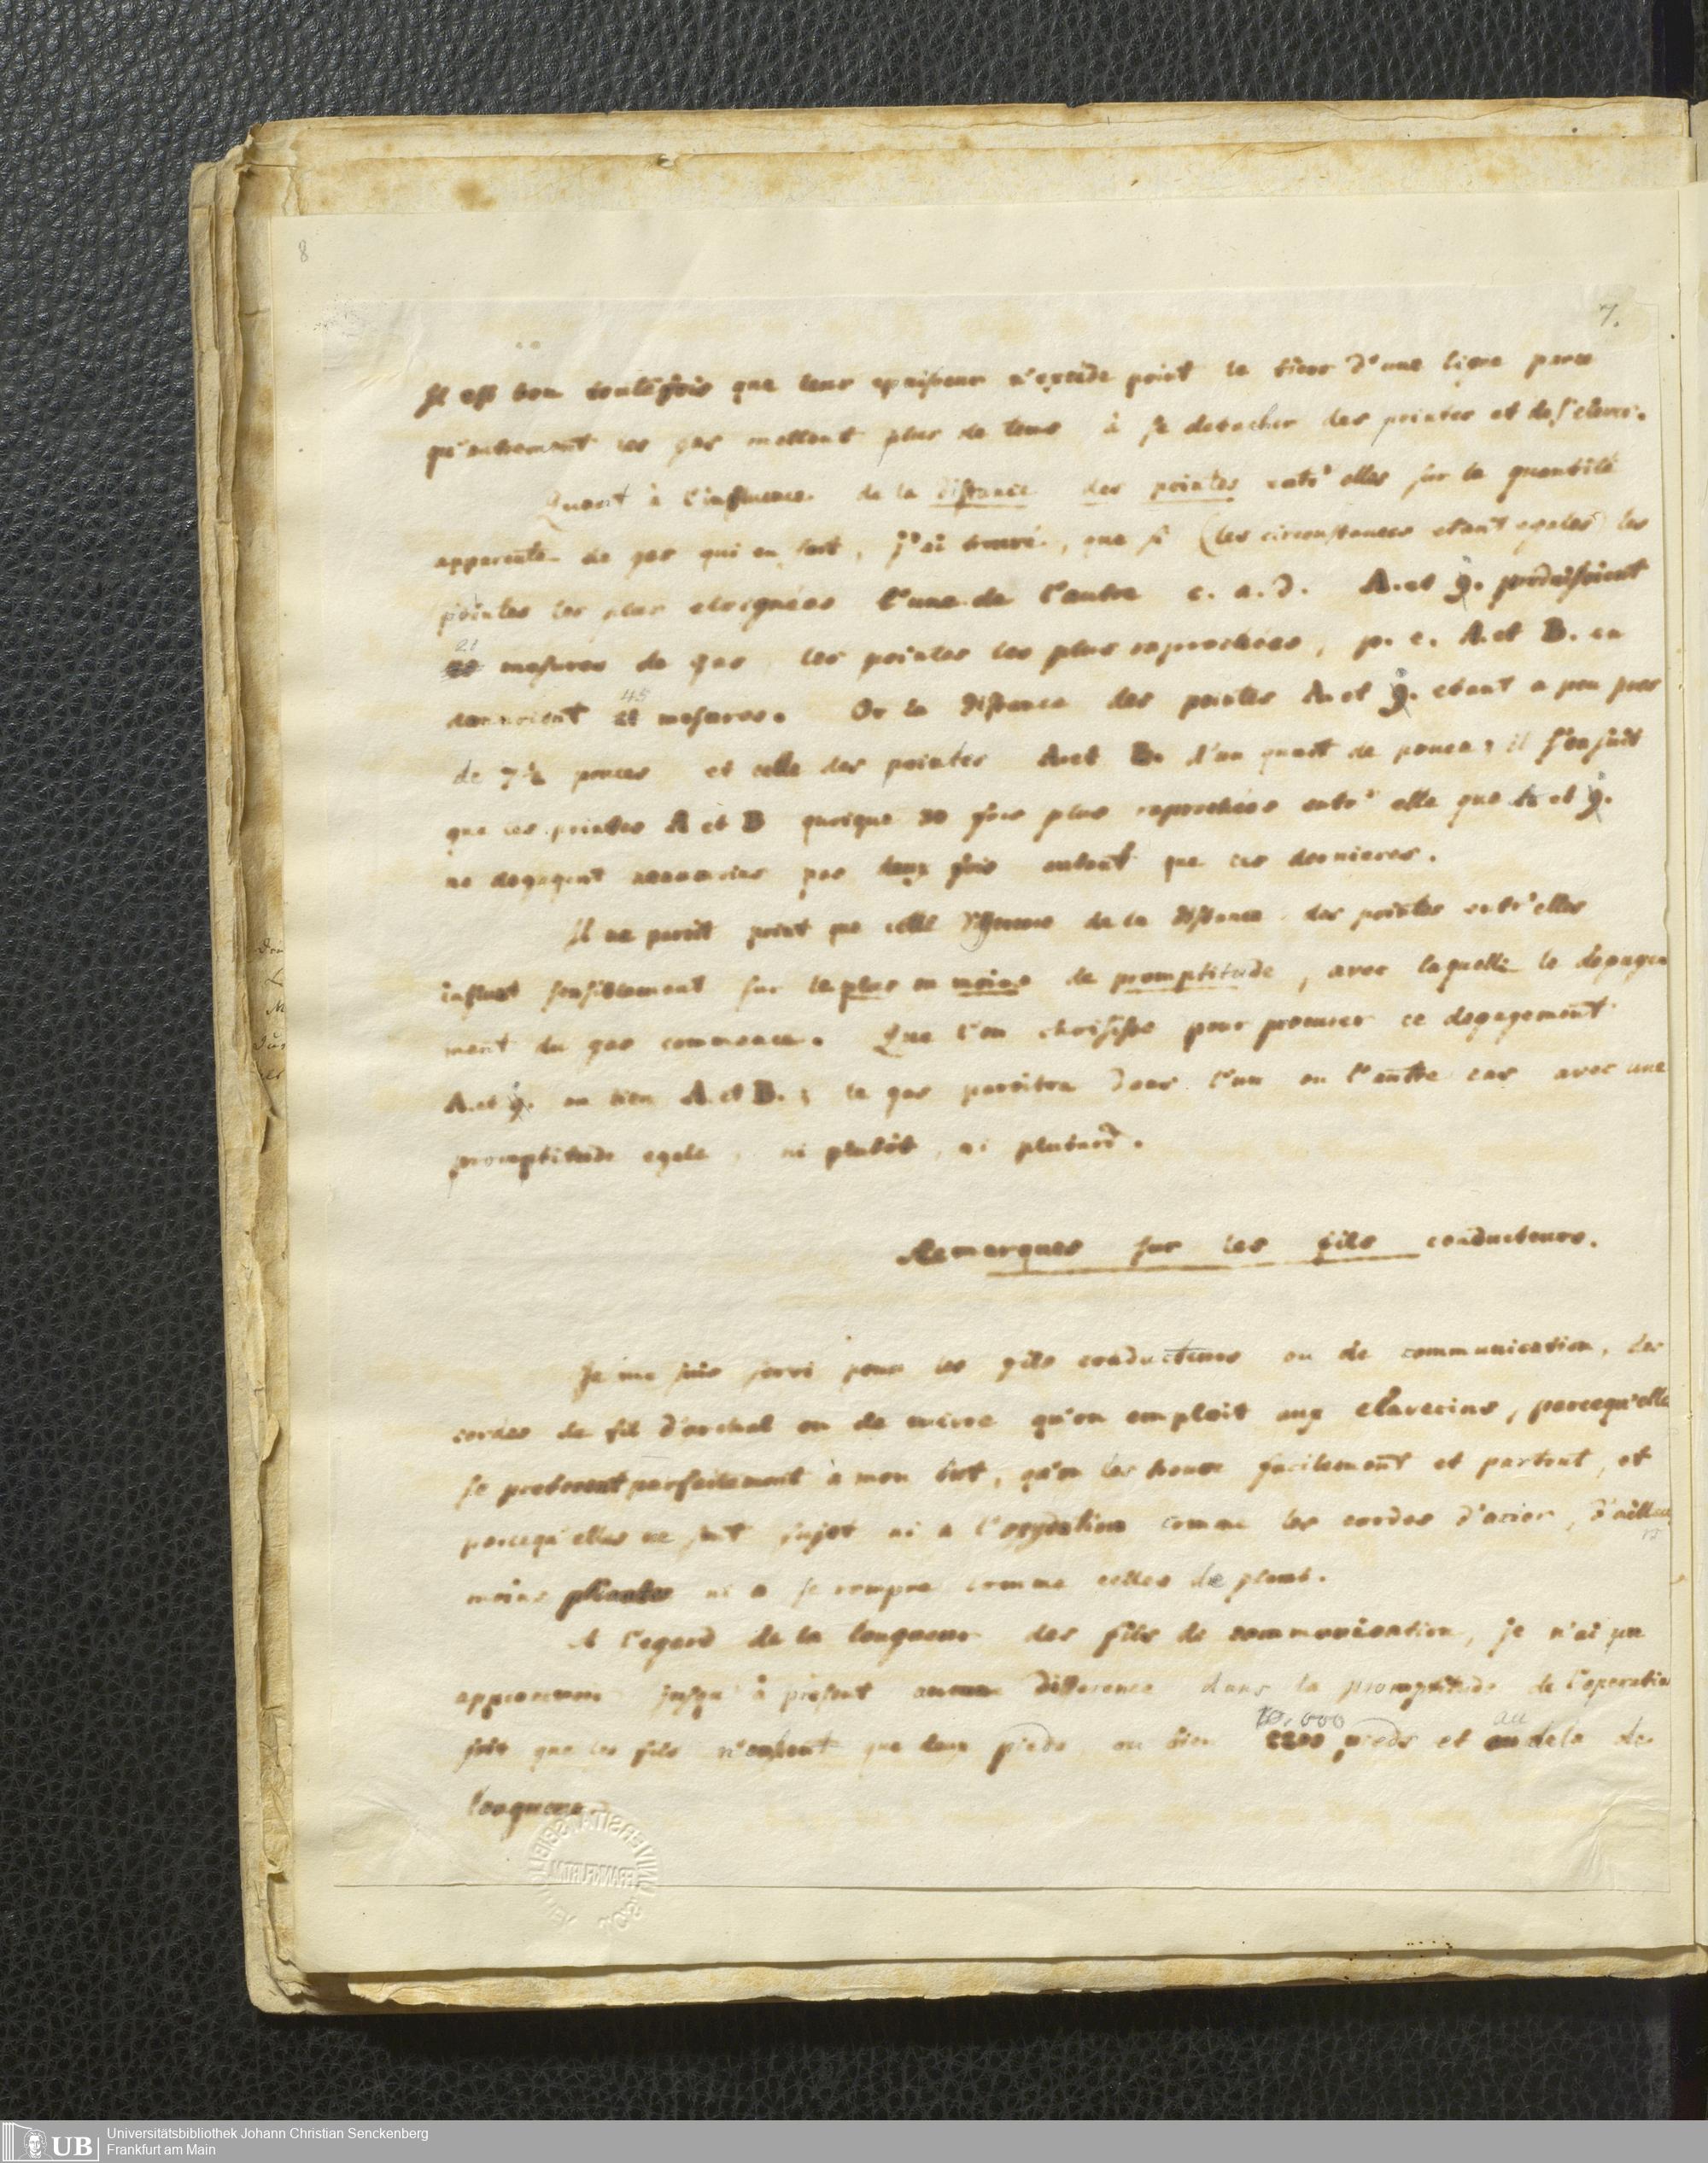 8
7.
Il est bon toutefois que leur epaisseur n'excéde point le tiers d'une ligne parce
qu'autrement les gas mettent plus de tems à se detacher des pointes et de s'elever.
Quant à l'influence de la distance des pointes entr'elles sur la quantité
apparente de gas qui en sort, j'ai trouvé, que si (les circonstances etant egales) les
pointes les plus eloignées l'une de l'autre c. a. d. A. et 9. produisoient
21
mesures de gas les pointes les plus raprochées, p. e. A. et B. en
45
donnoient mesures. Or la distance des pointes A. et 9. etant a peu pres
de 7½ pouces et celle des pointes A. et B. d'un quart de pouce; il s'en suit
que les pointes A et B quoique 30 fois plus raprochées entr'elle que A et 9.
ne degagent neanmoins pas deux fois autant que ces dernieres.
Il ne paroit point que cette de la distance des pointes entr'elles
influet sensiblement sur le plus ou moins de promptitude, avec laquelle le degage
ment du gas commence. Que l'on choisisse pour procurer ce degagement
A. et 9. ou bien A. et B.; le gas paroitra dans l'un ou l'autre cas avec une
promptitude egale, ni plutôt, ni plutard.
Remarques sur les fils conducteurs.
Je me suis servi pour les fils conducteurs ou de communication, des
cordes de fil d'archal ou de cuivre qu'on emploit aux clavecins, parcequ'elles
se preterent parfaitement à mon but, qu'on les trouve facilement et partout, et
parcequ'elles ne sont sujet ni a l'oxydation comme les cordes d'acier, d'ailleurs
moins pliantes ni a se rompre comme celles de plomb.
A l'egard de la longueur des fils de communication, je n'ai pu
appercevoir jusqu'à présent aucune difference dans la promptitude de l'operation
10,000 au
soit que les fils n'eussent que deux pieds, ou bien 2200 pieds et au dela de
longueur.
Universitätsbibliothek Johann Christian Senckenberg
Frankfurt am Main
UB